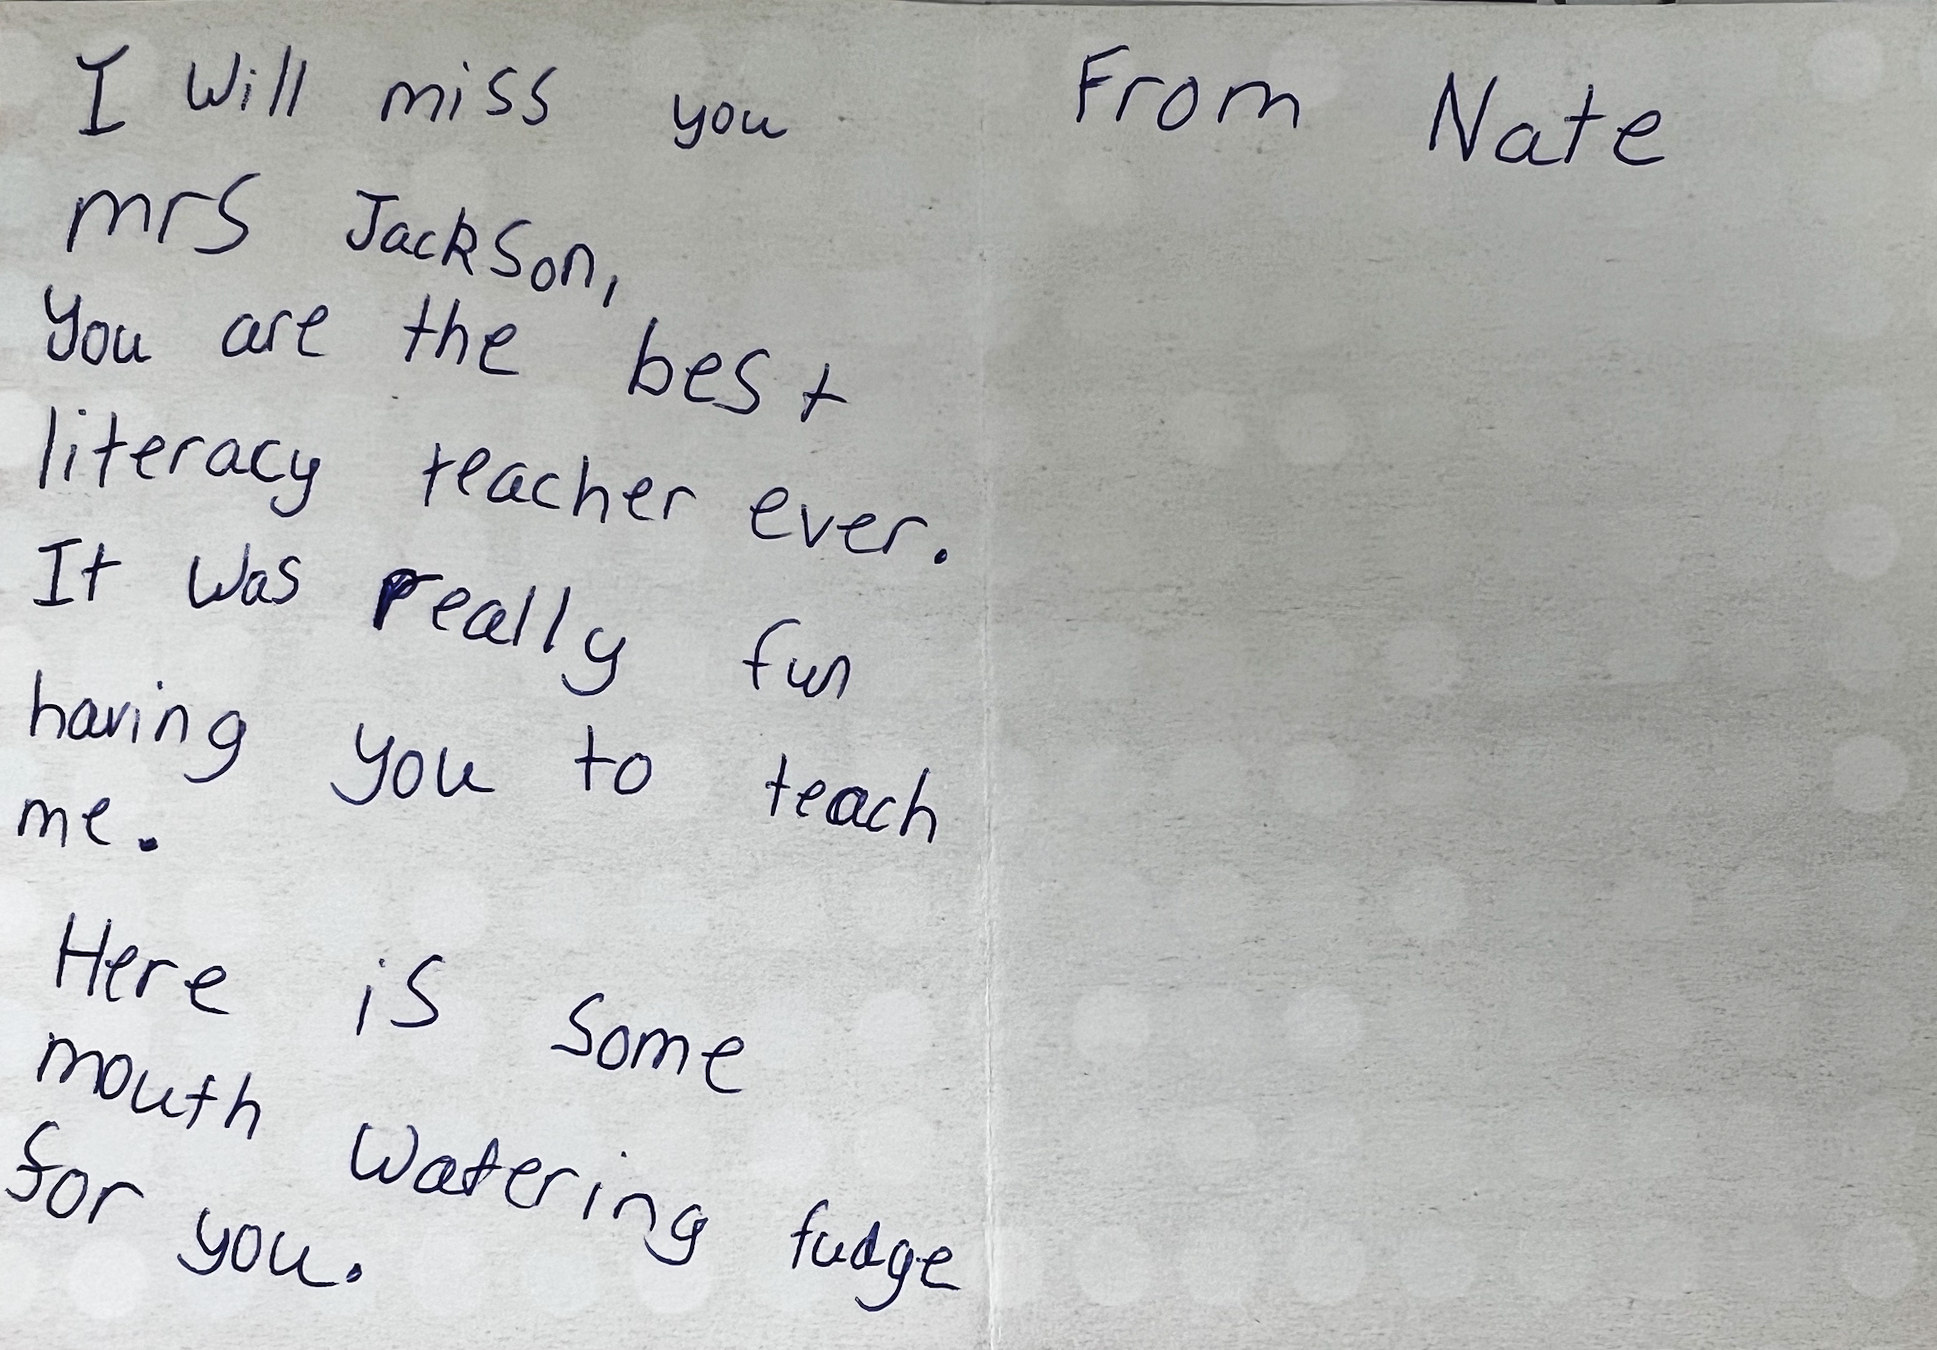 I will miss you
mrs Jackson,
You are the best
literacy teacher ever.
It was really fun
having you to teach
me.
Here is some
mouth watering fudge
for you.
From Nate